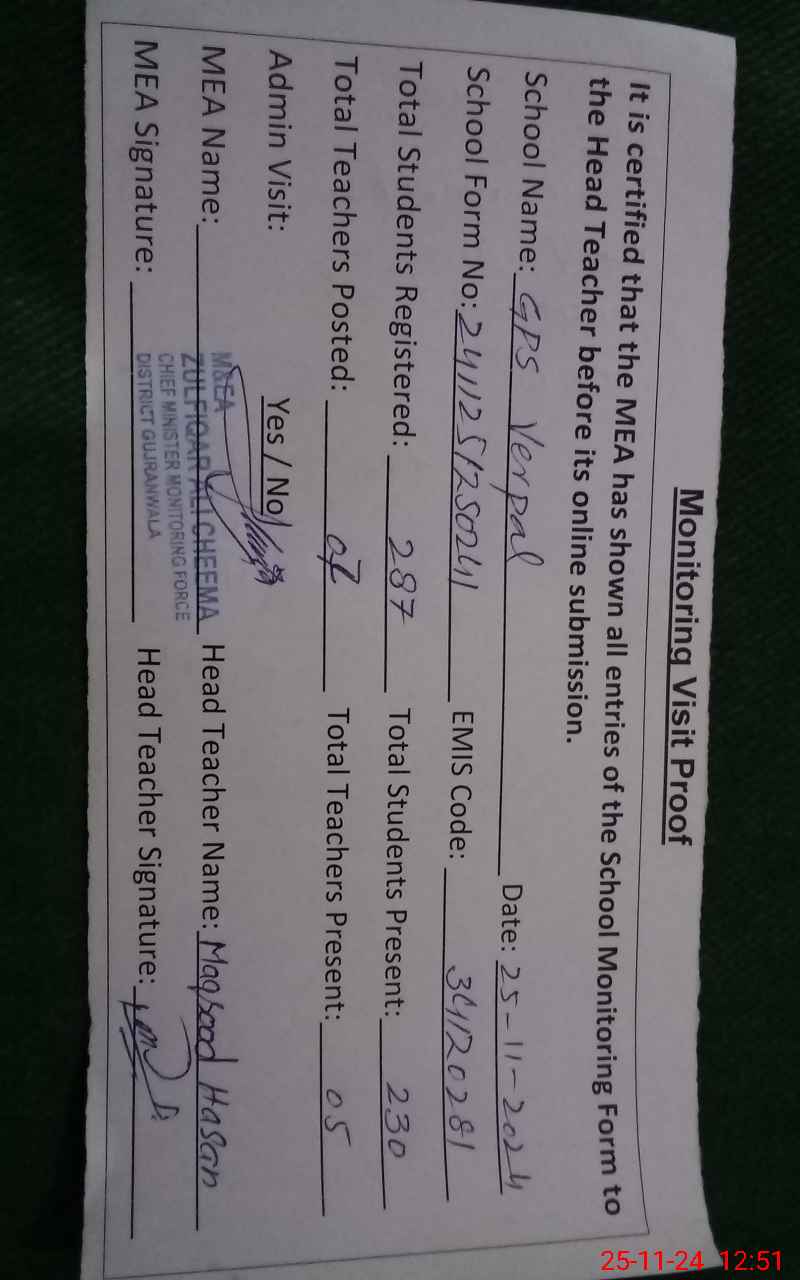 Monitoring Visit Proof
It is certified that the MEA has shown all entries of the School Monitoring Form to
the Head Teacher before its online submission.
School Name: GPS Verpal Date: 25-11-2024
School Form No: 2411251250241 EMIS Code: 34120281
Total Students Registered: 287 Total Students Present: 230
Total Teachers Posted: 07 Total Teachers Present: 05
Admin Visit: Yes / No
M&EA
MEA Name: ZULFIQAR ALI CHEEMA Head Teacher Name: Maqsood Hasan
CHIEF MINISTER MONITORING FORCE
MEA Signature: DISTRICT GUJRANWALA Head Teacher Signature:
25-11-24 12:51